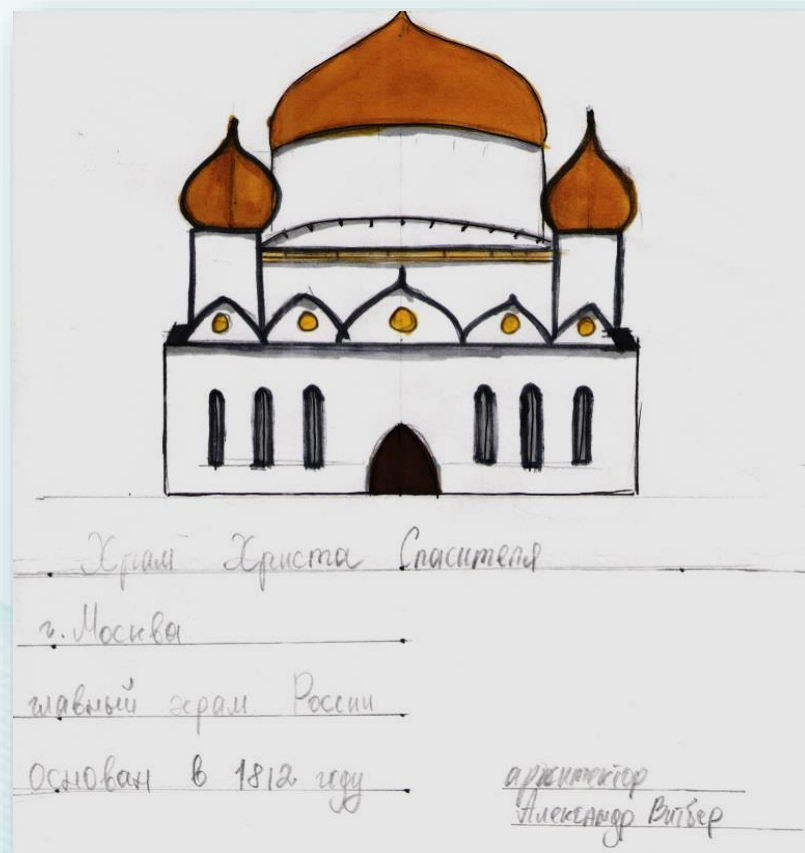 Храм Христа Спасителя
г. Москва
главный храм России
основан в 1812 году
архитектор
Александр Витбер